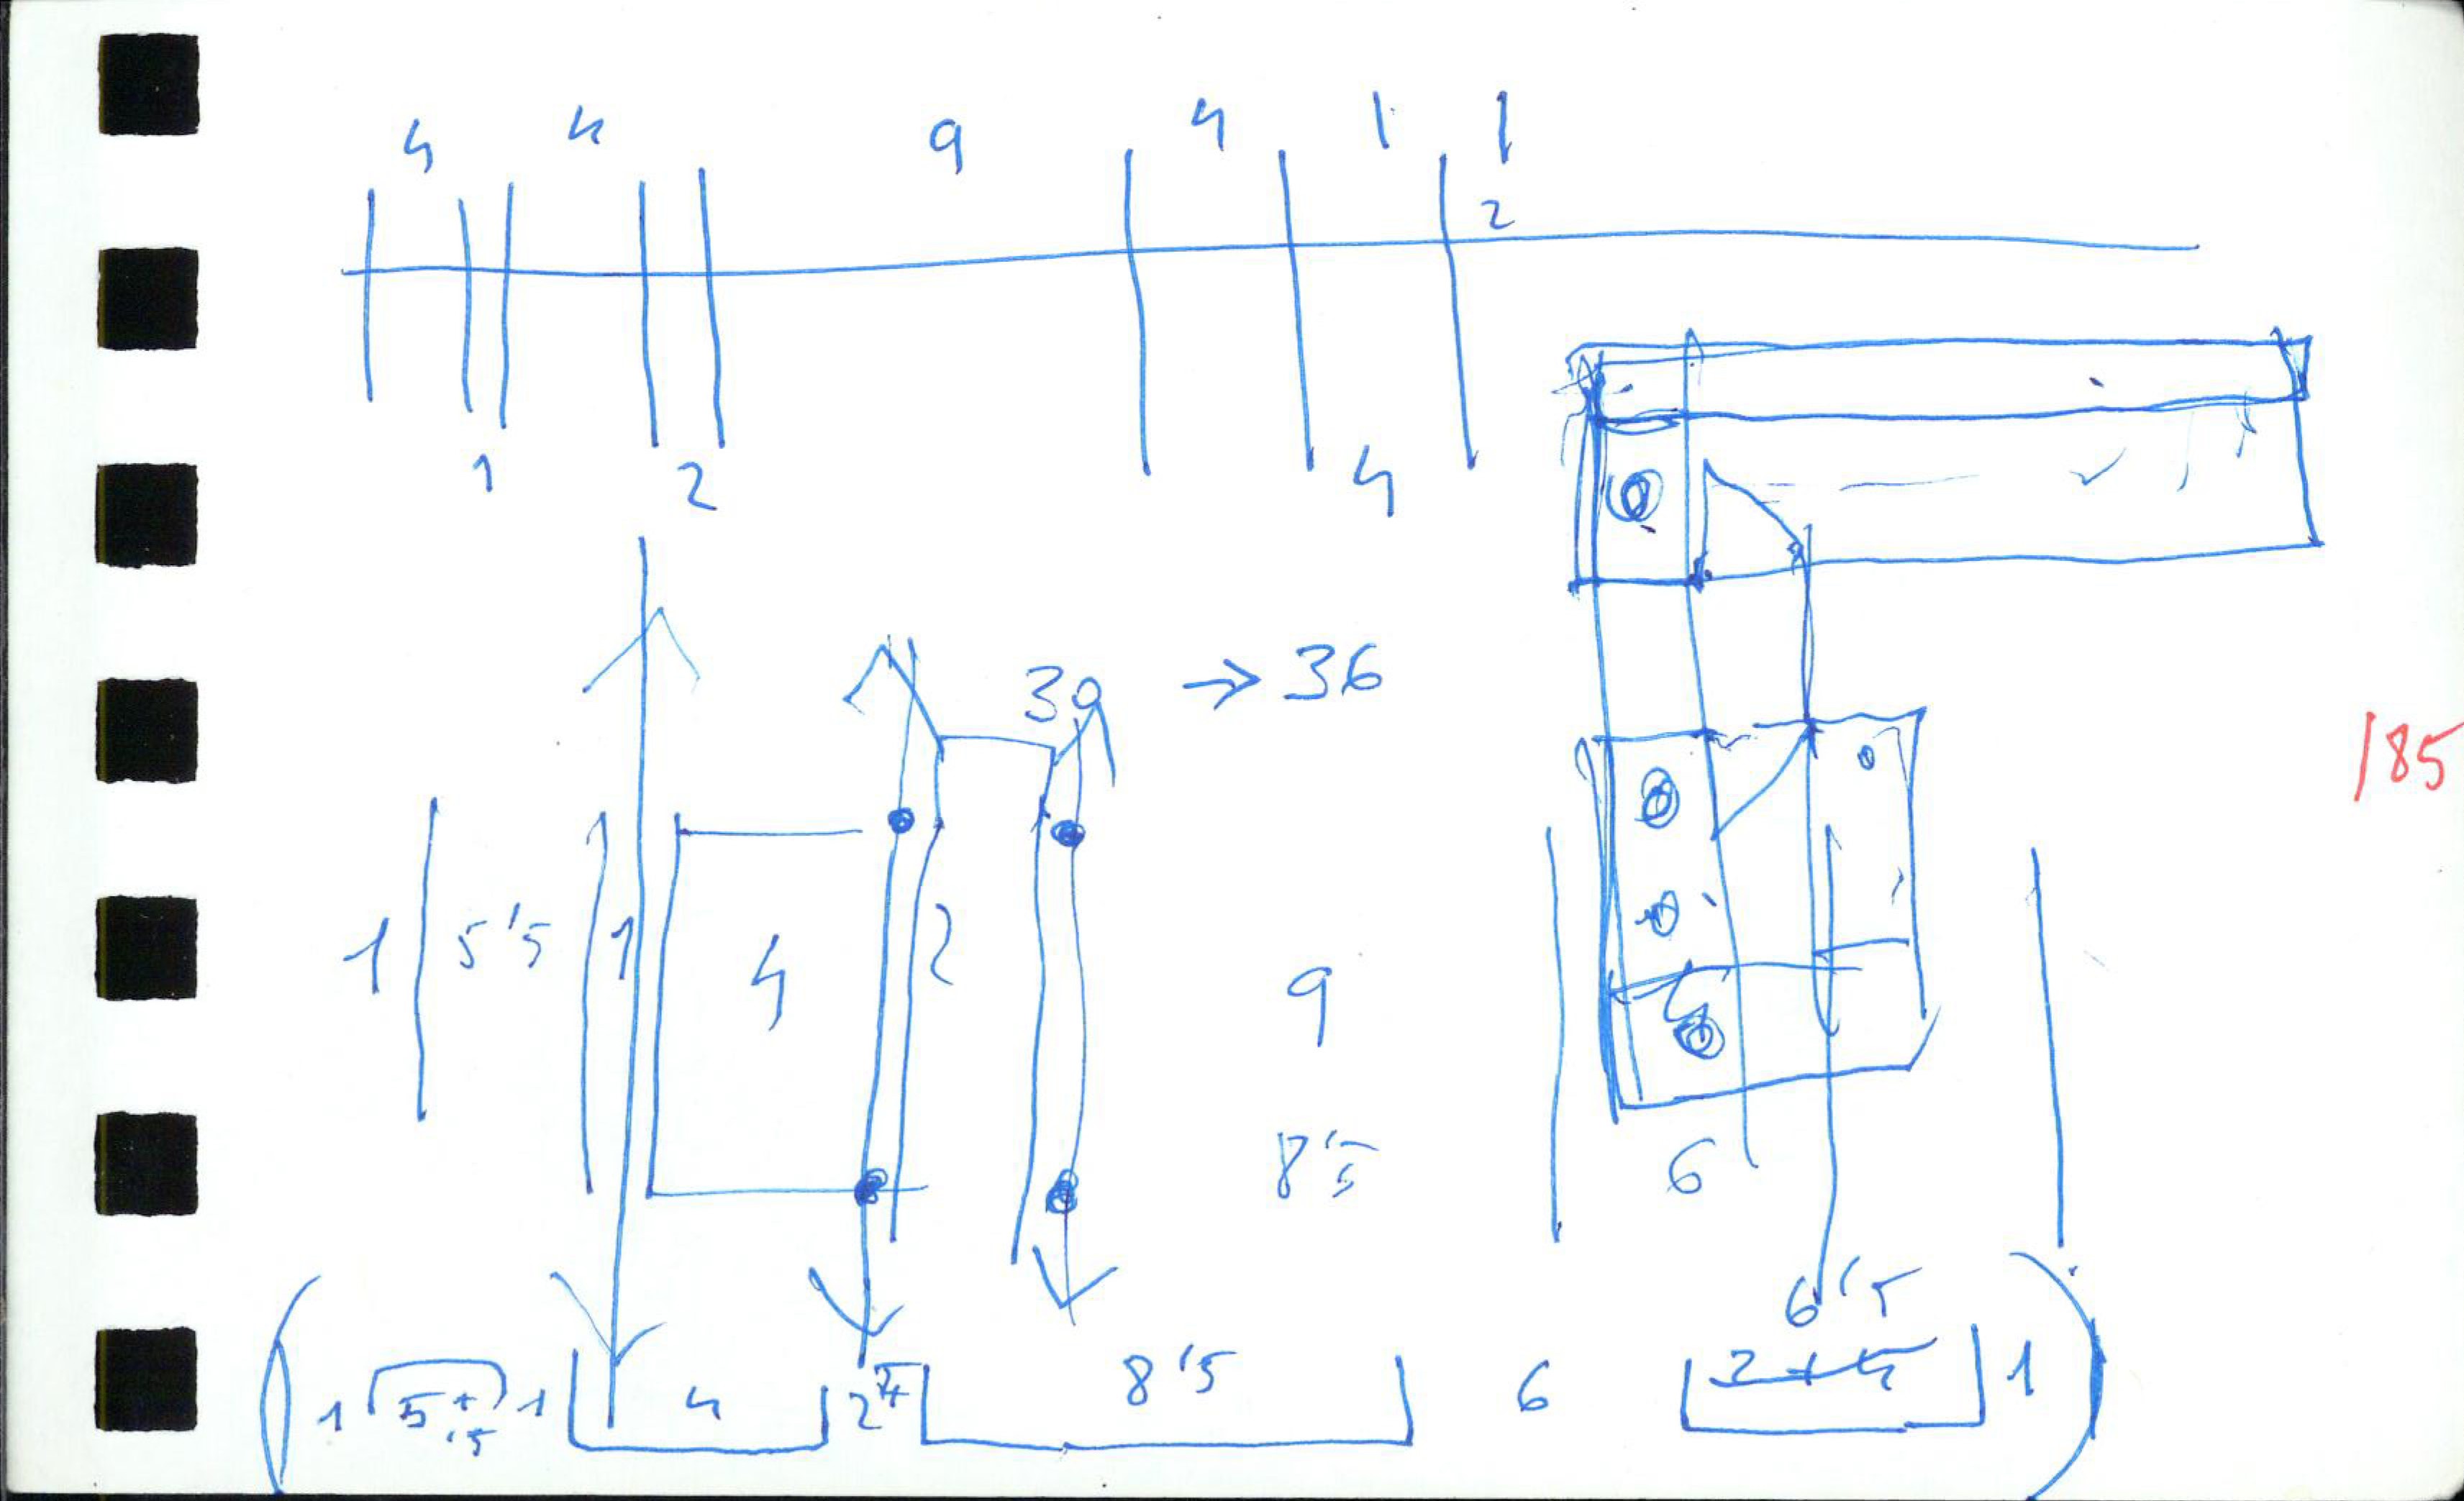 4 4 9 4 1 1
2
1 2 4
39 → 36
185
1 5'5 1 4 2 9
8'5 6
6'5
1 5+'5 1 4 2 8'5 6 2+4 1